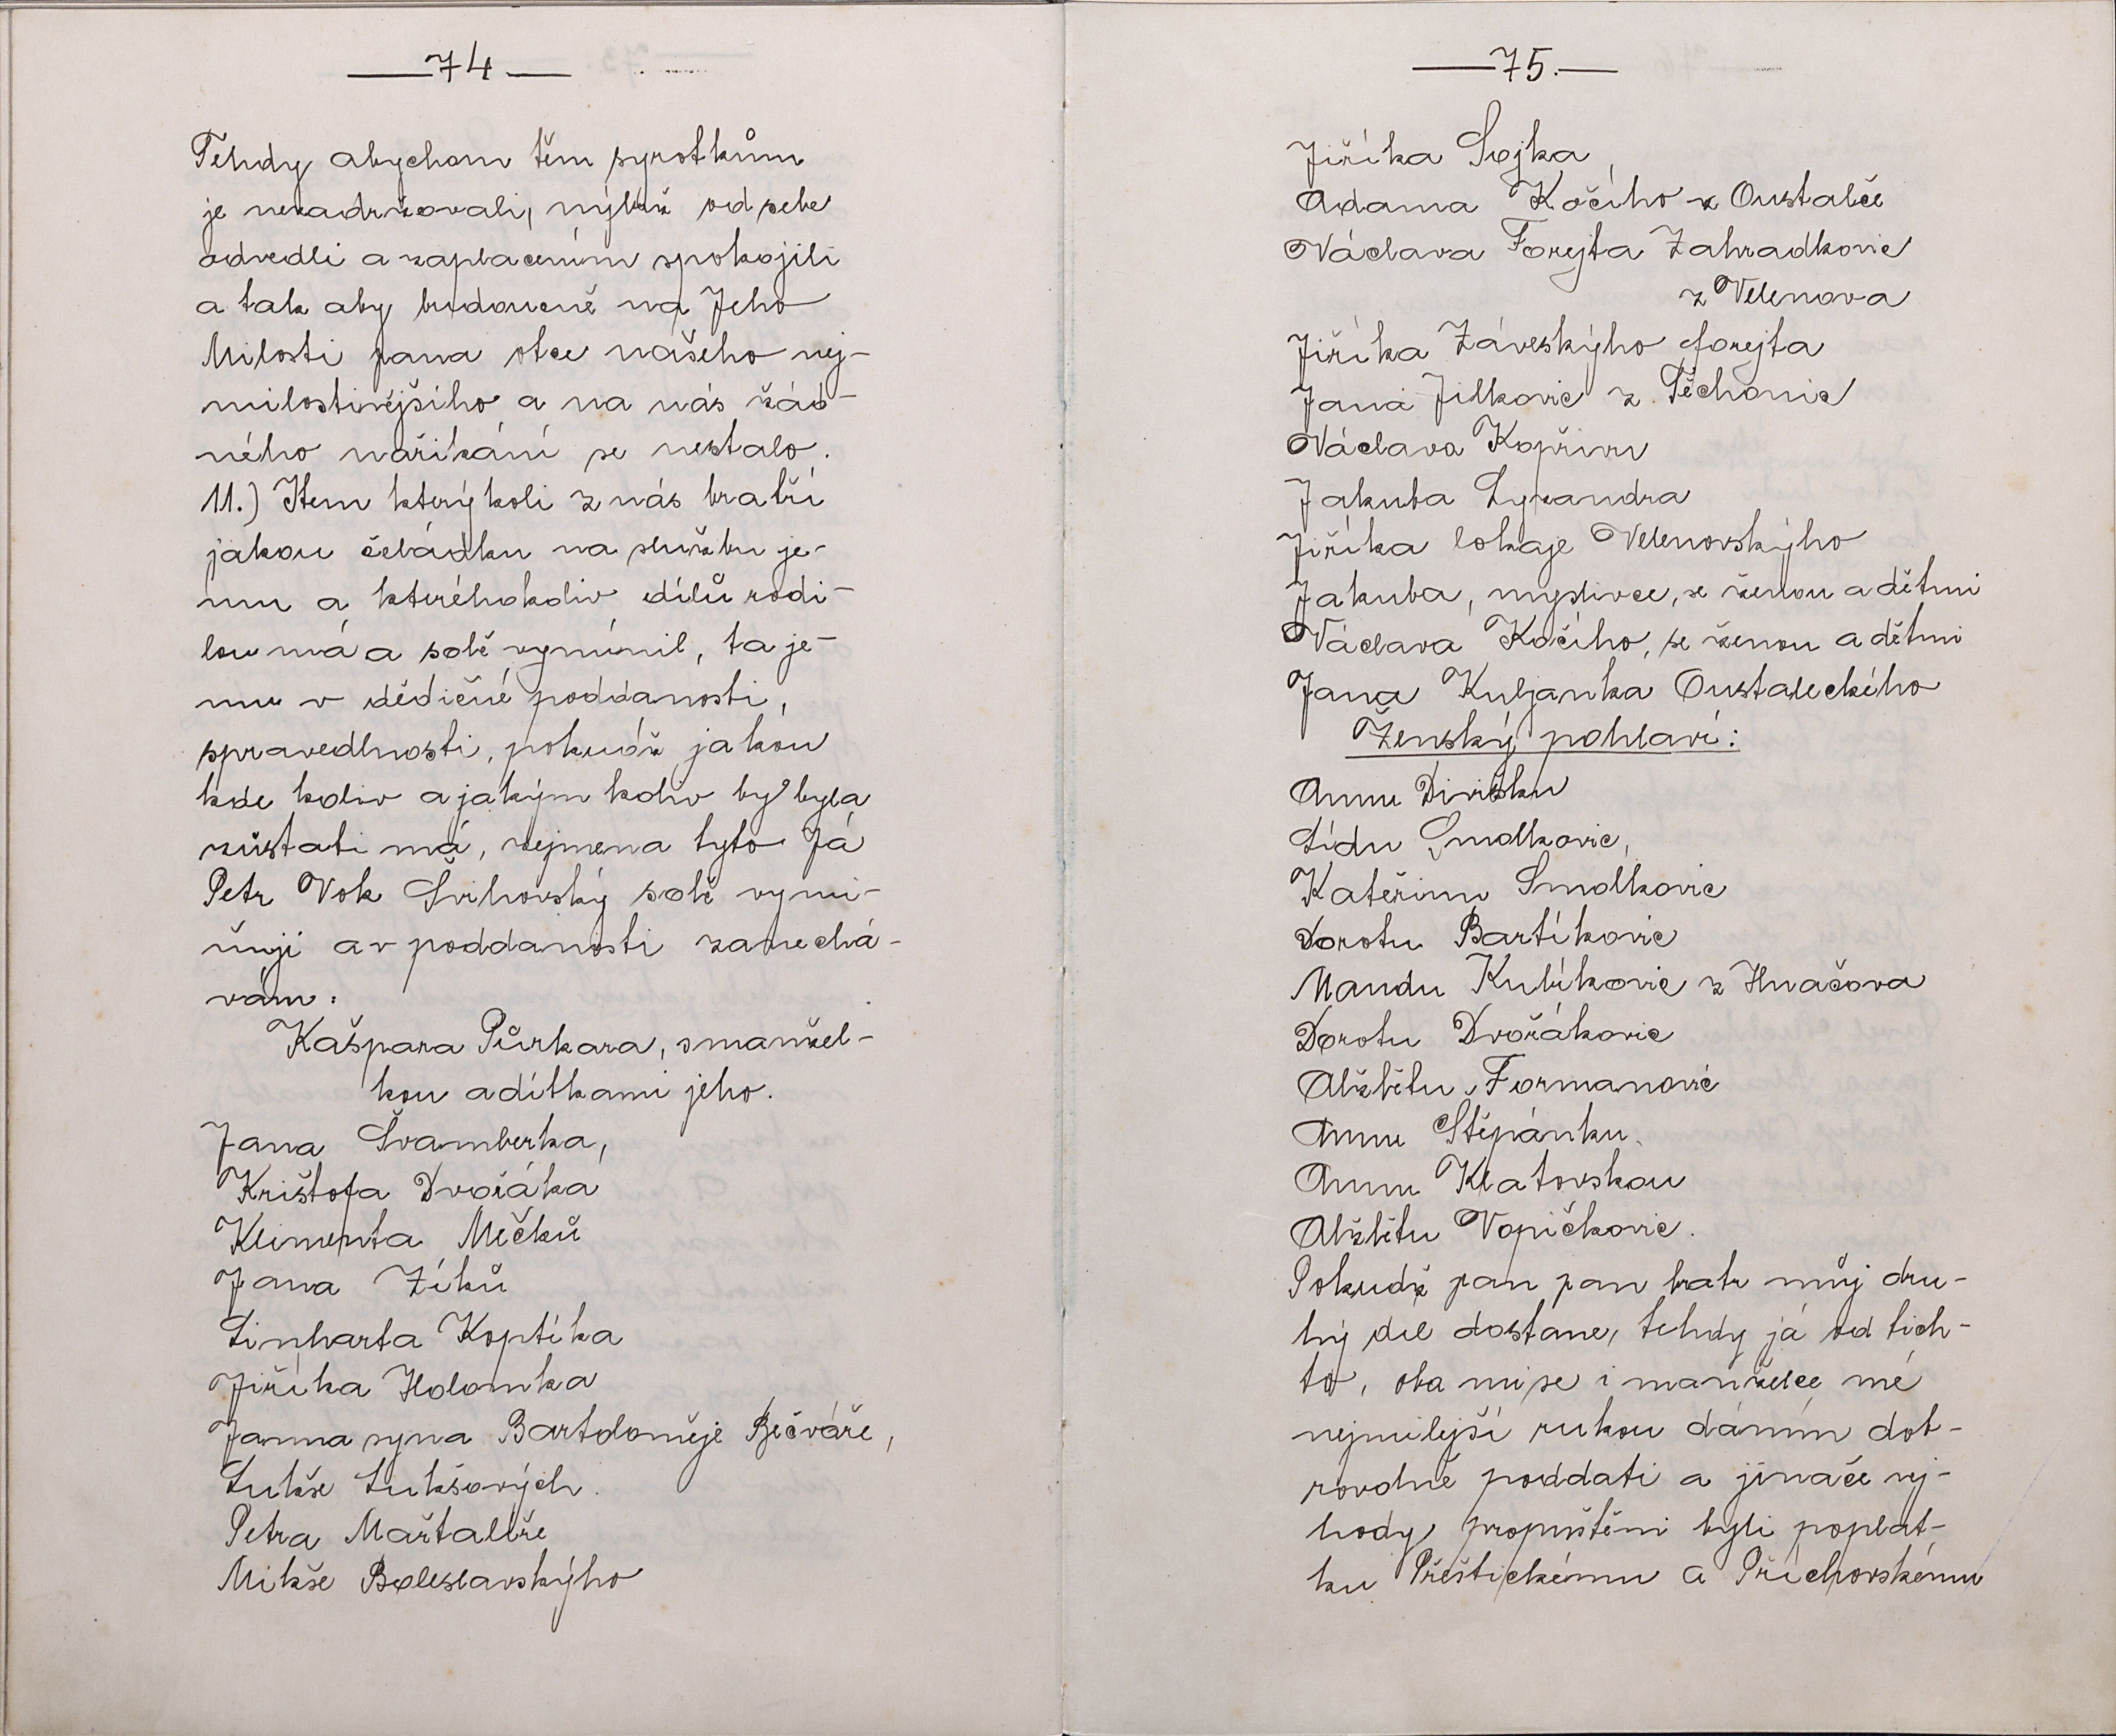 74
Tehdy abychom těm syrotkům
je nezadržovali, nýbrž od sebe
odvedli a zaplacením spokojili
a tak aby budoucně na Jeho
Milosti pana otce našeho nej-
milostivějšího a na nás žád-
ného nařikání se nestalo.
11.) Item kterýkoli z nás bratří
jakou čeládku na službu je-
mu a kteréhokoliv dílů rodi-
lou má a sobě vymínil, ta je-
mu v dědičné poddanosti,
spravedlnosti, pokudž jakou
kde koliv a jakým koliv by byla
zůstati má, zejmena tyto Já
Petr Vok Švihovský sobě vymi-
ňuji a v poddanosti zanechá-
vám:
Kašpara Půrkara, s manžel-
kou a dítkami jeho.
Jana Švamberka,
Krištofa Dvořáka
Klimenta Mečků
Jana Zíků
Linharta Koptíka
Jiříka Holomka
Janna syna Bartoloměje Bečváře,
Lukše Lukšových.
Petra Maštalíře
Mikše Boleslavskýho
75.
Jiříka Sojka,
Adama Kočího z Oustalče
Václava Forejta Zahradkovic
z Velenova
Jiříka Záveskýho forejta
Jana Jilkovic z Těchonic
Václava Kopřivu
Jakuba Lyzandra
Jiříka lokaje Velenovskýho
Jakuba, myslivce, se ženou a dětmi
Václava Kočího, se ženou a dětmi
Jana Kuljanka Oustaleckého
Ženský pohlaví:
Annu Divišku
Lídu Smolkovic,
Kateřinu Smolkovic
Dorotu Bartíkovic
Mandu Kubíkovic z Hnačova
Dorotu Dvořákovic
Alžbětu Formanovic
Annu Štěpánku.
Annu Klatovskou
Alžbětu Vopičkovic.
Pokudž pan pan bratr můj dru-
hý díl dostane, tehdy já od tich-
to, oba mi se i manželce mé
nejmilejší rukou dáním dob-
rovolně poddati a jinače vej-
hody propuštěni byli poplat-
ku Přeštickému a Příchovskému